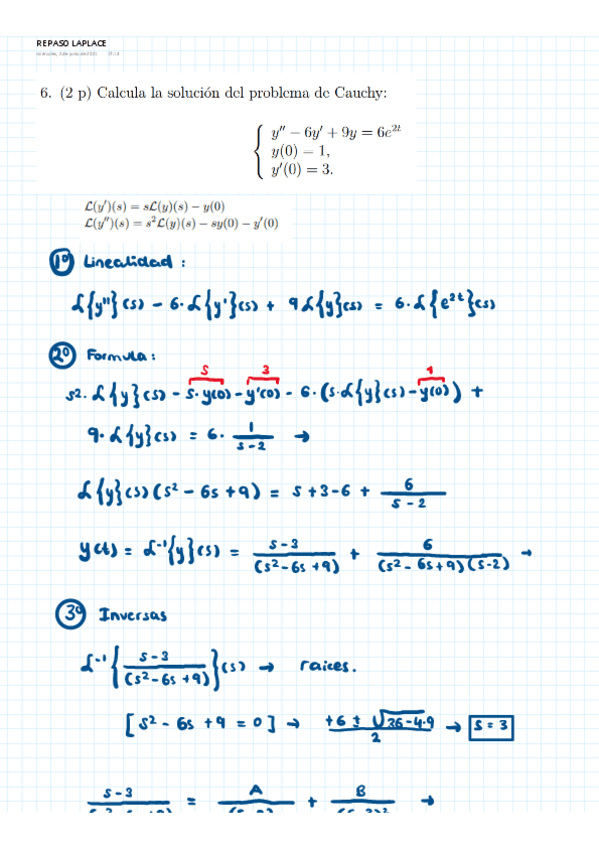 REPASO LAPLACE
6. (2 p) Calcula la solución del problema de Cauchy:
y'' − 6y' + 9y = 6e^{2t}
y(0) = 1,
y'(0) = 3.
ℒ(y')(s) = sℒ(y)(s) − y(0)
ℒ(y'')(s) = s²ℒ(y)(s) − sy(0) − y'(0)
1º Linealidad :
ℒ{y''}(s) − 6·ℒ{y'}(s) + 9ℒ{y}(s) = 6·ℒ{e^{2t}}(s)
2º Formula :
s 3 1
s²·ℒ{y}(s) − s·y(0) − y'(0) − 6·(s·ℒ{y}(s) − y(0)) +
9·ℒ{y}(s) = 6· 1/(s−2) →
ℒ{y}(s)(s² − 6s + 9) = s + 3 − 6 + 6/(s − 2)
y(t) = ℒ⁻¹{y}(s) = (s − 3)/(s² − 6s + 9) + 6/((s² − 6s + 9)(s − 2)) →
3º Inversas
ℒ⁻¹{(s − 3)/(s² − 6s + 9)}(s) → raices.
[s² − 6s + 9 = 0] → (+6 ± √(36 − 4·9))/2 → s = 3
s − 3 = A + B →